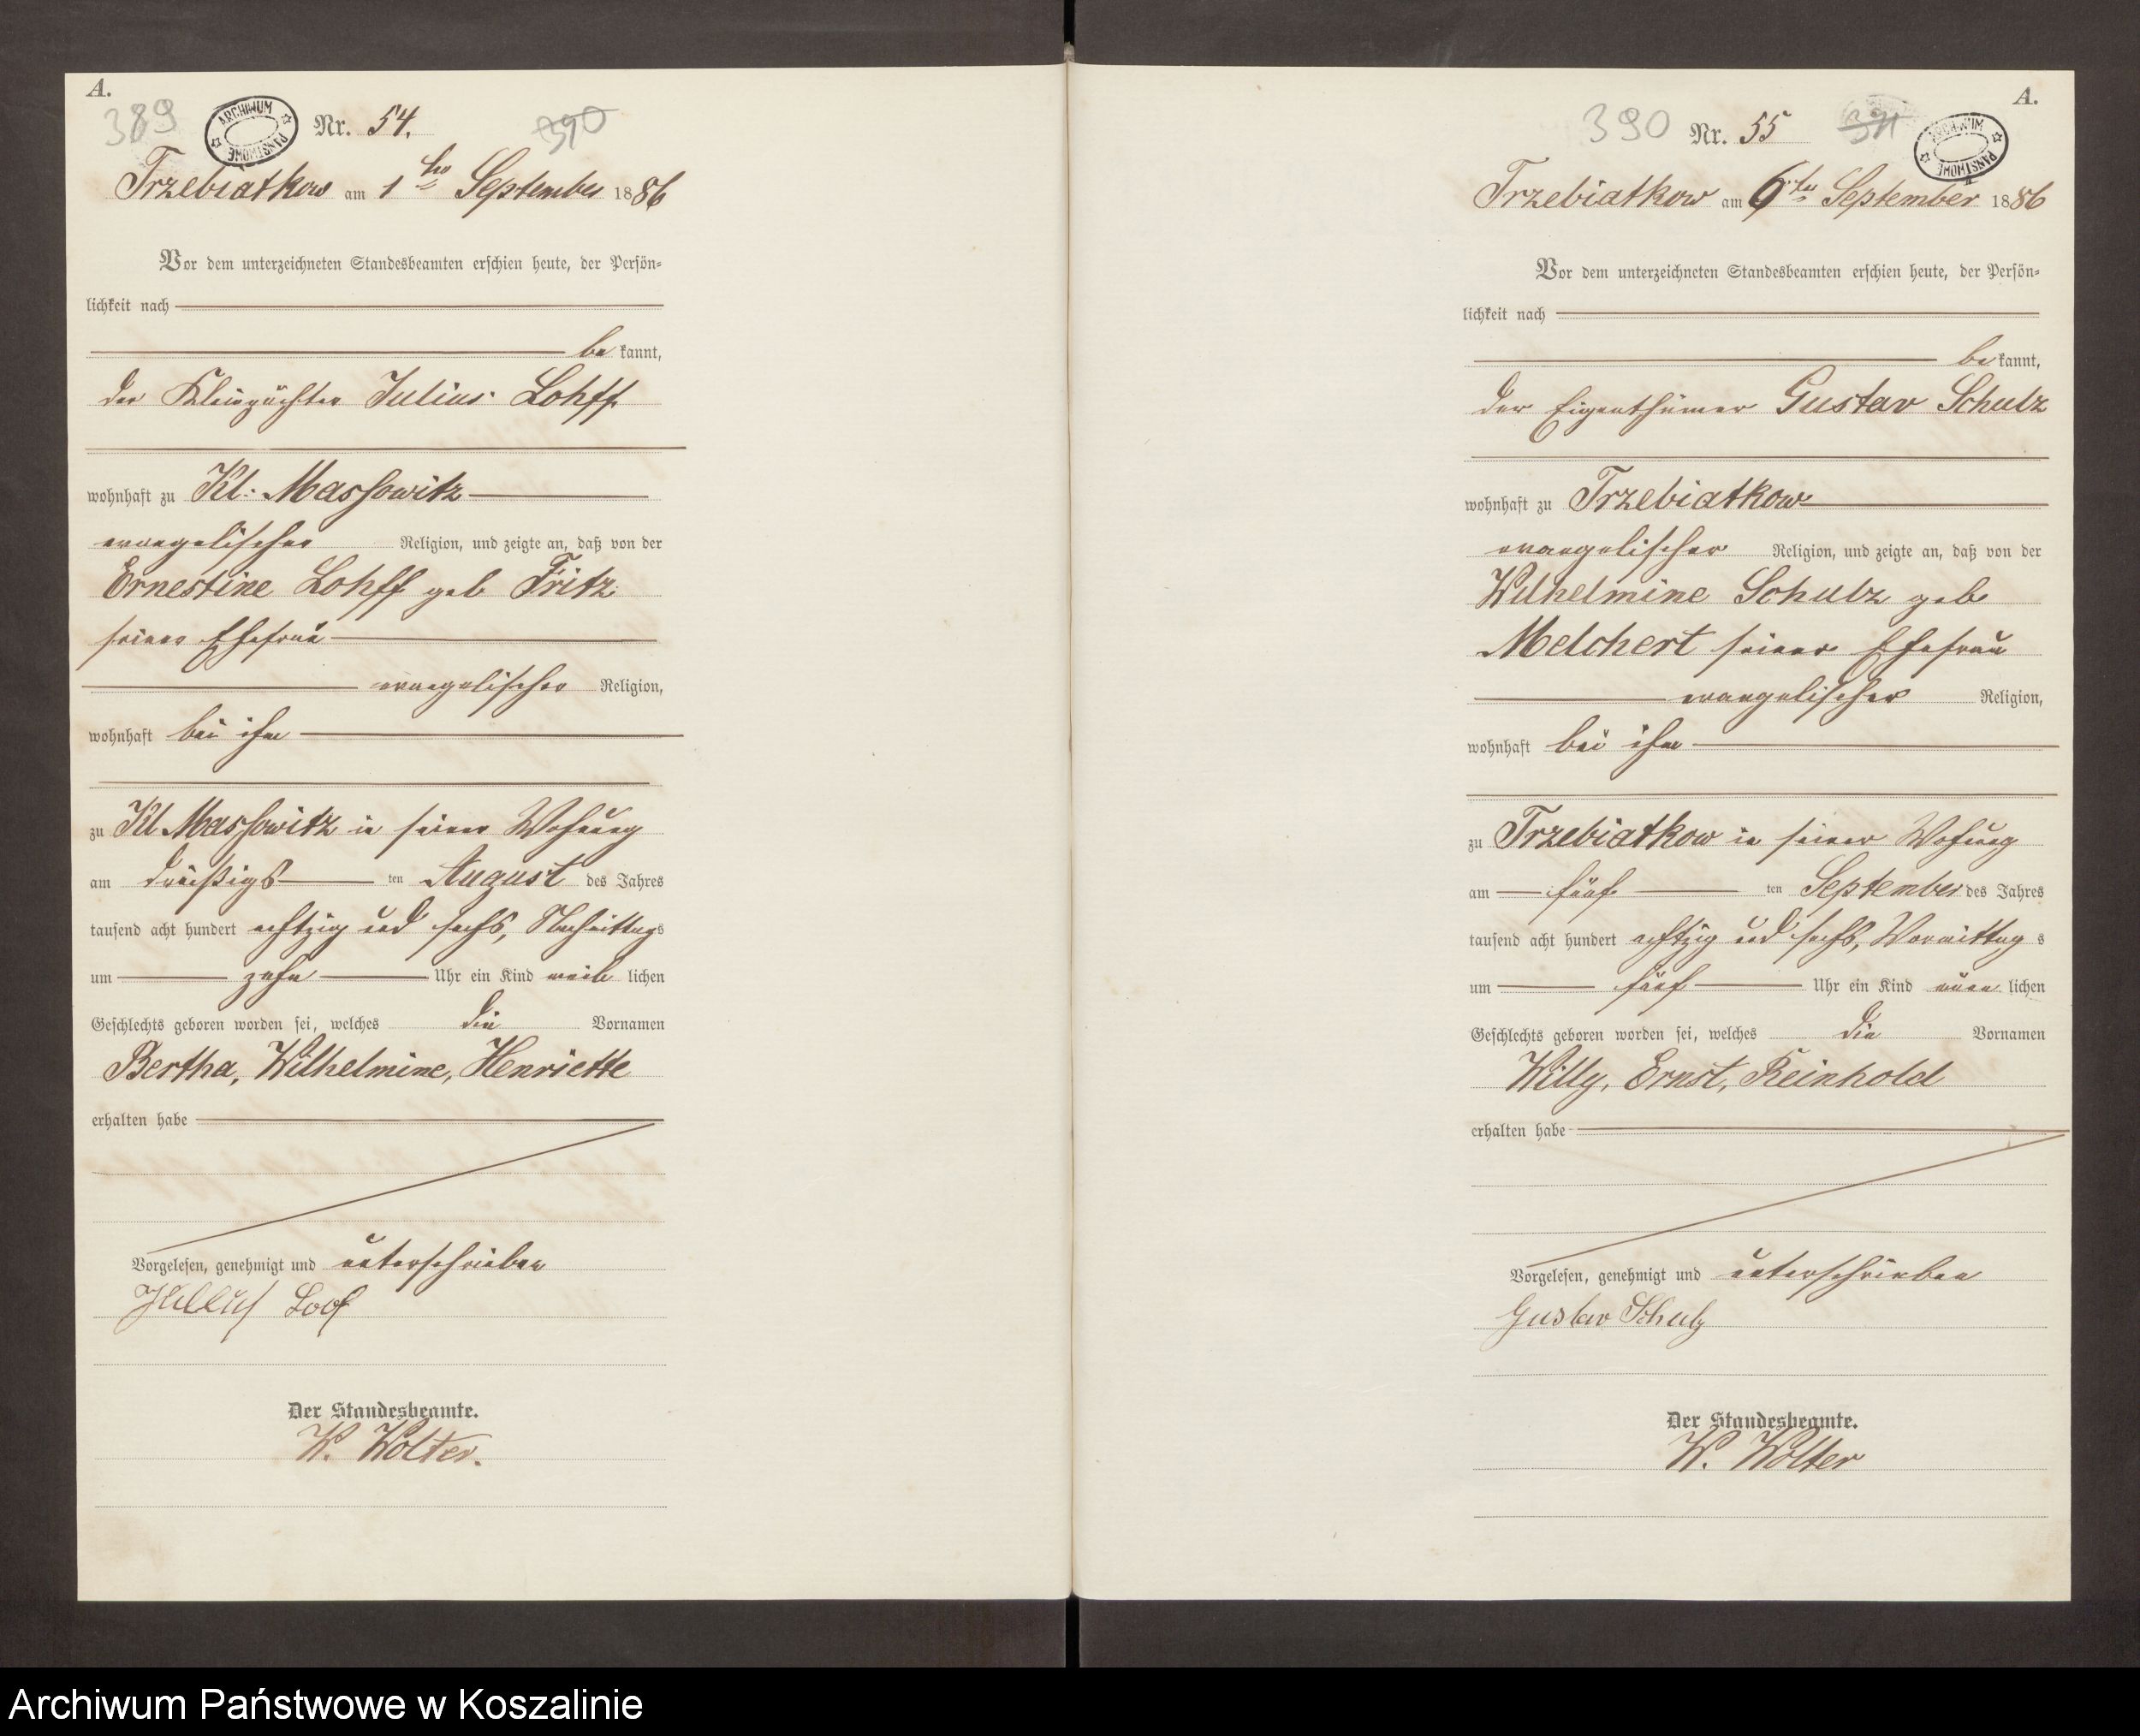 A.
389
ARCHIWUM PAŃSTWOWE
Nr. 54.
390
Trzebiatkow am 1ten September 1886
Vor dem unterzeichneten Standesbeamten erschien heute, der Persön-
lichkeit nach
be kannt,
der Kleinpächter Julius Lohff
wohnhaft zu Kl. Massowitz
evangelischer Religion, und zeigte an, daß von der
Ernestine Lohff geb Fritz
seiner Ehefrau
evangelischer Religion,
wohnhaft bei ihm
zu Kl Massowitz in seiner Wohnung
am dreißigs ten August des Jahres
tausend acht hundert achtzig und sechs, Nachmittags
um zehn Uhr ein Kind weib lichen
Geschlechts geboren worden sei, welches die Vornamen
Bertha, Wilhelmine, Henriette
erhalten habe
Vorgelesen, genehmigt und unterschrieben
Julius Loof
Der Standesbeamte.
W. Wolter.
A.
390
Nr. 55
391
ARCHIWUM PAŃSTWOWE
Trzebiatkow am 6ten September 1886
Vor dem unterzeichneten Standesbeamten erschien heute, der Persön-
lichkeit nach
be kannt,
der Eigenthümer Gustav Schulz
wohnhaft zu Trzebiatkow
evangelischer Religion, und zeigte an, daß von der
Wilhelmine Schulz geb
Melchert seiner Ehefrau
evangelischer Religion,
wohnhaft bei ihm
zu Trzebiatkow in seiner Wohnung
am fünf ten September des Jahres
tausend acht hundert achtzig und sechs, Vormittag s
um fünf Uhr ein Kind männ lichen
Geschlechts geboren worden sei, welches die Vornamen
Willy, Ernst, Reinhold
erhalten habe
Vorgelesen, genehmigt und unterschrieben
Gustav Schulz
Der Standesbeamte.
W. Wolter
Archiwum Państwowe w Koszalinie